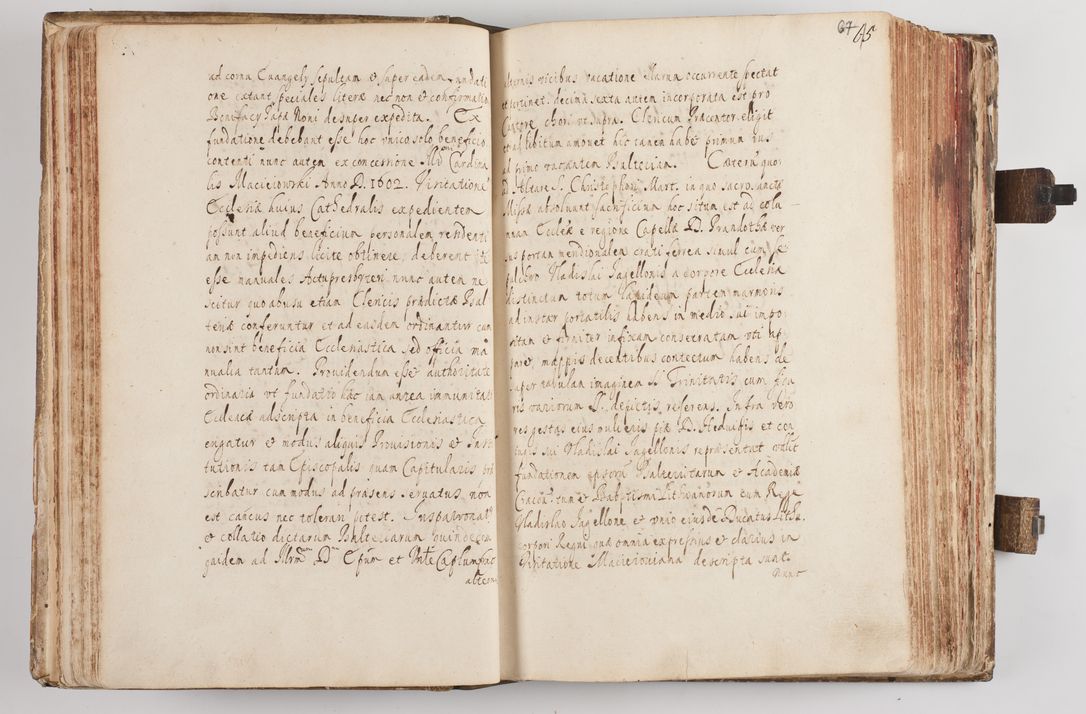 ad cornu Euangely sepultam et super eadem fundati
one extant speciales literæ nec non et confirmatio
Bonifacy Papæ Noni desuper expedita. Ex
fundatione debebant esse hoc vnico solo beneficio
contenti nunc autem ex concessione Cardina
lis Macieiowski Anno D. 1602. Visitatione
Ecclesiæ huius Cathedralis expedientem
possunt aliud beneficium personalem residenti
am non impediens licite obtinere, deberent
esse manuales Actupresbyteri nunc autem ne
scitur quo abusu etiam Clericis prædictæ Psal
teriæ conferuntur et ad easdem ordinantur cum
non sint beneficia Ecclesiastica sed officia ma
nualia tantum. Prouidendum esset authoritate
ordinaria vt fundatio hæc iam antea immunitati
Ecclesiæ adscripta in beneficia Ecclesiastica
erigatur et modus aliquis Prouisionis et Insti
tutionis tam Episcopalis quam Capitularis
scribatur cum modus ad præsens seruatus non
est cancus nec tolerari potest. Iuspatronatus
et collatio dictarum Psalteriarum quindecem
quidem ad Illrm D Epum et Vnle Caplum
altern
67 65
alternis vicibus vacatione Illarum occurrente spectat
et pertinet: decima sexta autem incorporata est pro
chori vt supra. Clericum Præcentor eligit
et ad libitum amouet hic tamen habet primum ius
ad primo vacantem Psalteriam. Cæterum quo
D. Altare S. Christophori Mart. in quo sacrosancta
Missæ absoluunt sacrificium hoc situm est ad colu
mnam Eccleæ e regione Capellæ D. Prandothæ ver
sus portam meridionalem crati ferrea simul cum se
pulchro Vladislai Jagellonis a corpore Ecclesiæ
distinctum totum lapideum partem marmoris
ad instar portatilis habens in medio sui impo
sitam et firmiter infixam consecratam vti ap
paret mappis decentibus contectum habens de
super tabulam imaginem S. Trinitatis cum figu
ris variorum D. depictis referens. Infra vero
res gestas eius mulieris piæ D. Heduigis et con
iugis sui Vladislai Jagellonis repræsentat
fundationem Psalteristarum et Academiæ
Cracou tum et Baptismi Lithuanorum cum Rege
Vladislao Jagellone et vnio eiusde Ducatus Lith:
corpori Regni quæ omnia expressius et clarius in
Visitatione Macieiouiana descripta sunt
Nunc